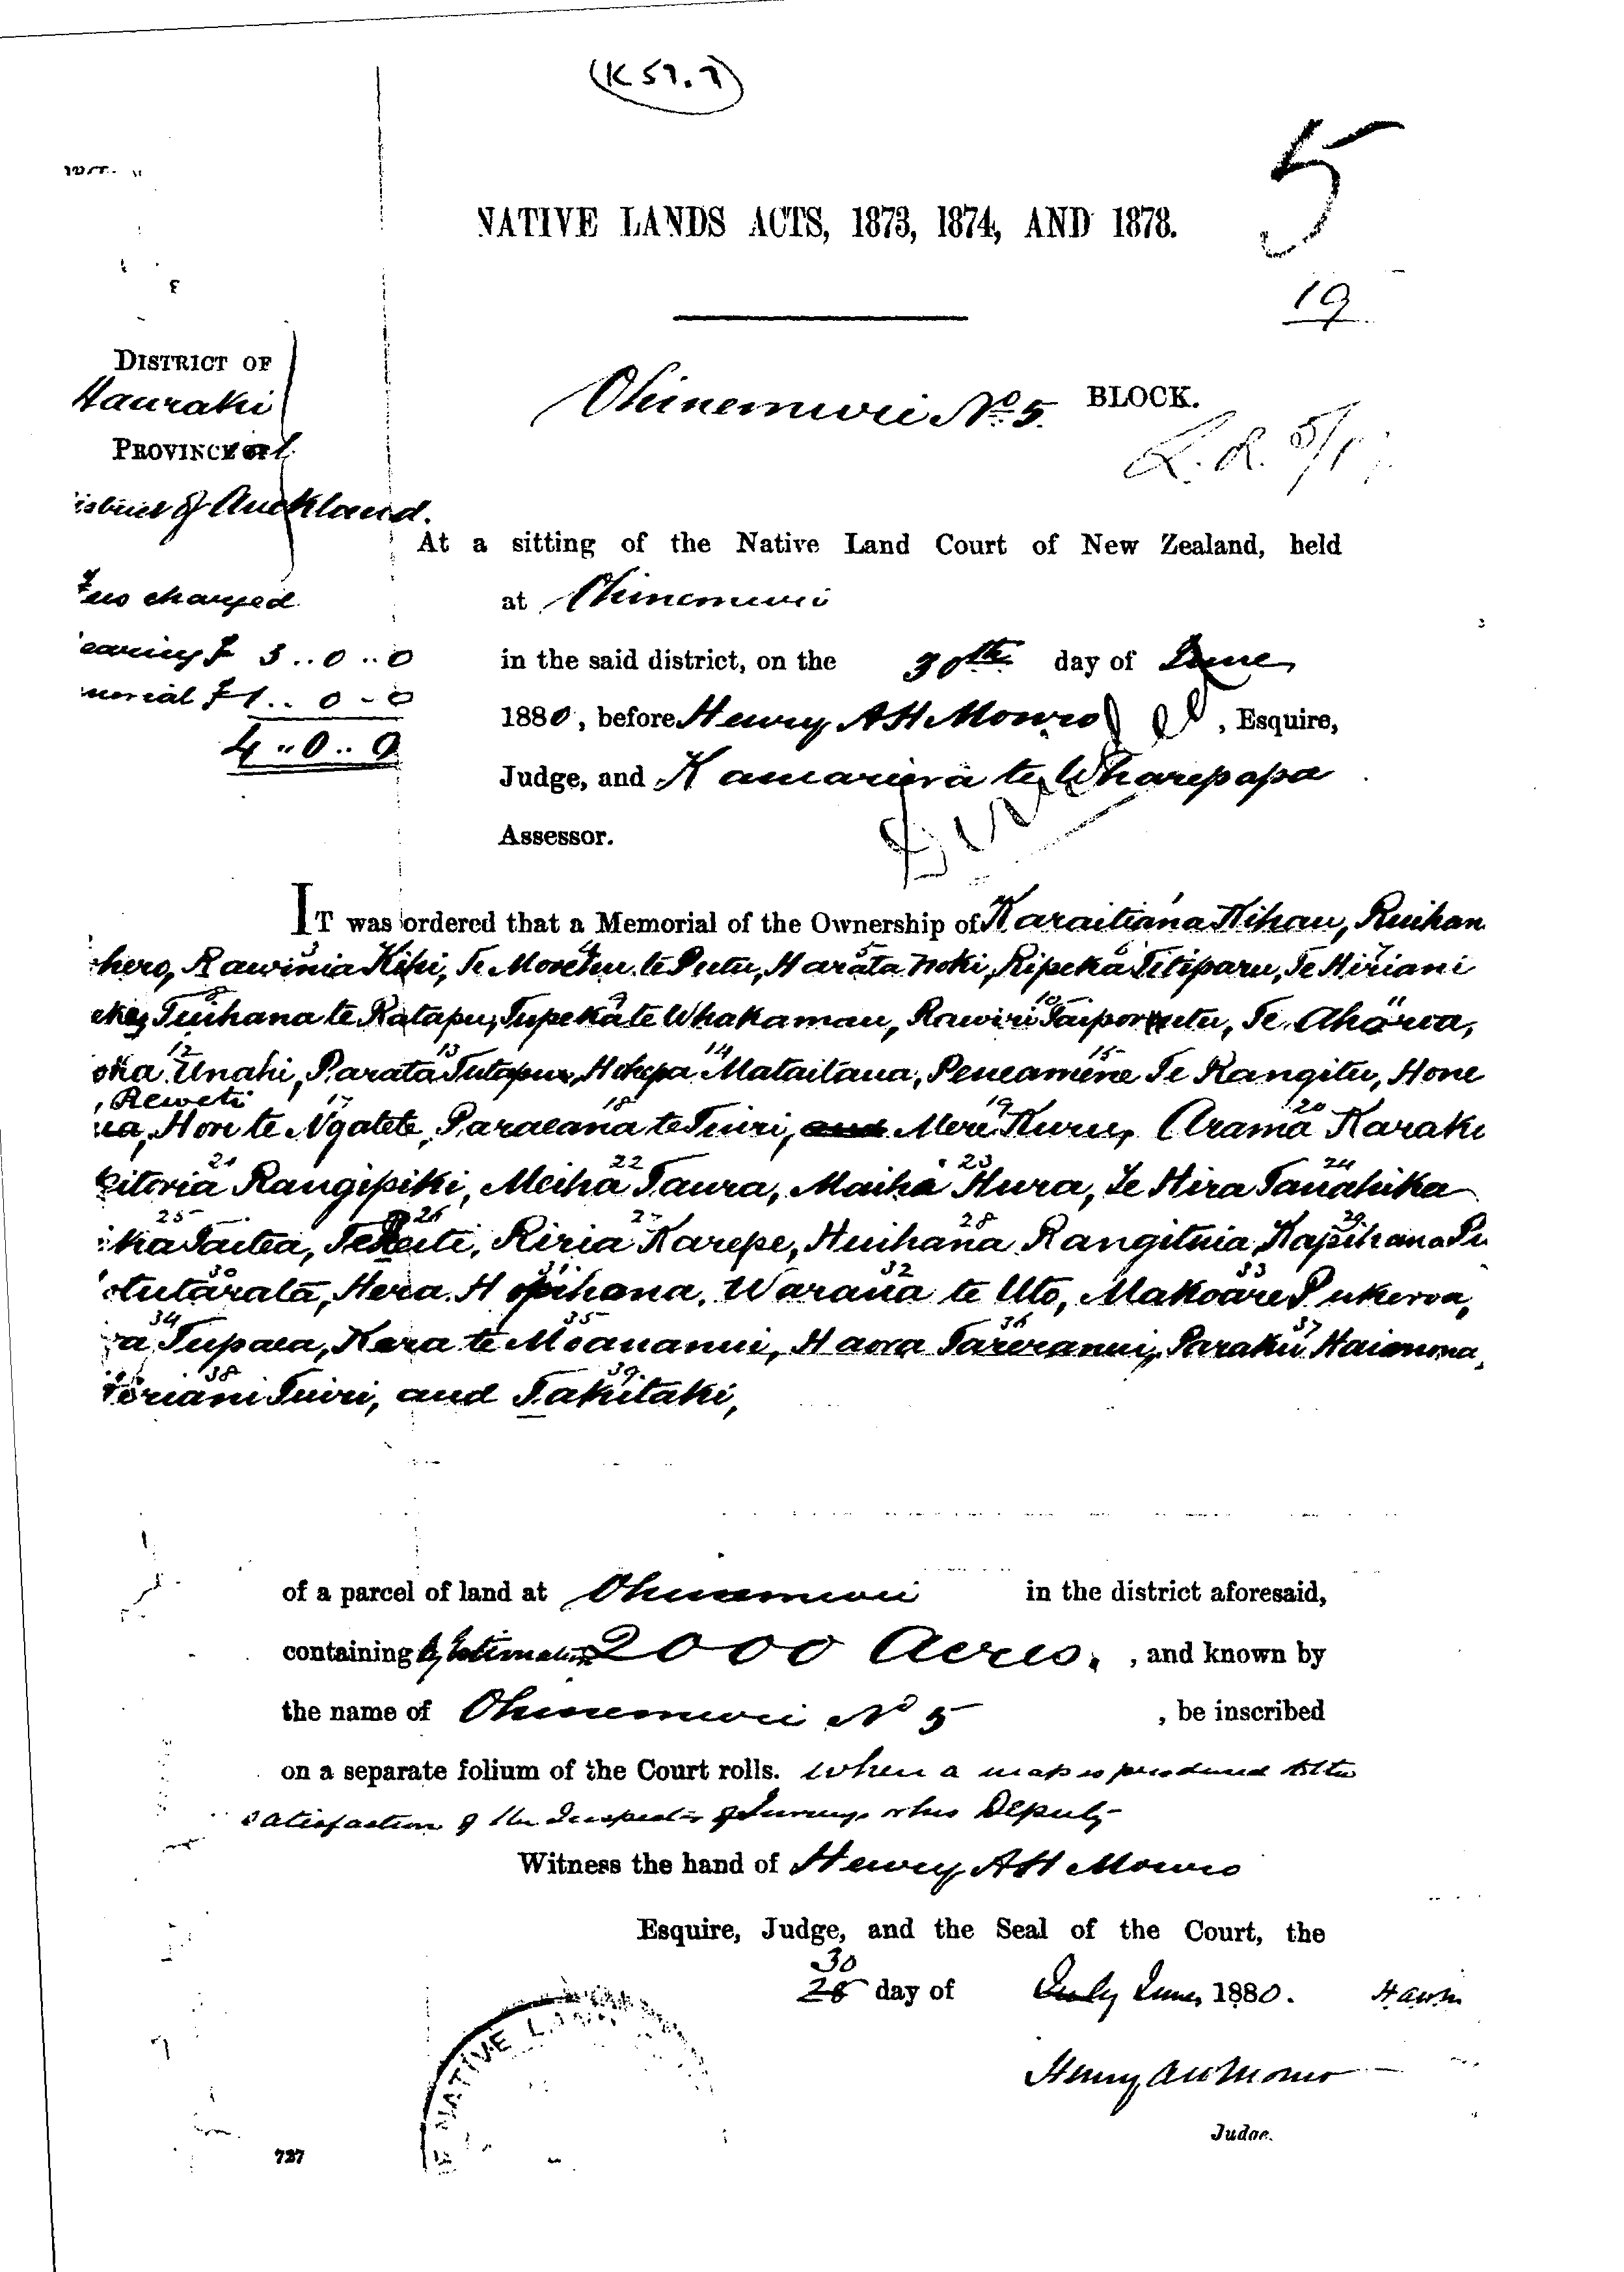 (K 57.7)
5
NATIVE LANDS ACTS, 1873, 1874, AND 1878.
19
DISTRICT OF
Hauraki
Ohinemuri No. 5. BLOCK.
PROVINCE OF
District of Auckland.
At a sitting of the Native Land Court of New Zealand, held
Fees charged
at Ohinemuri
earing £ 3..0..0
in the said district, on the 30th day of June
morial £1..0-0
1880, before Henry A H Monro, Esquire,
4..0..0
Judge, and Kamariera te Wharepapa
Assessor.
IT was ordered that a Memorial of the Ownership of Karaitiana Kihau, Ruihan
hero, Rawinia Kihi, Te Morehu te Putu, Harata Noki, Ripeka Titiparu, Te Hiriani
Tuihana te Ratapu, Tupeka te Whakamau, Rawiri Taiporutu, Te Ahoroa,
oka Unahi, Parata Tutapu, Hohepa Mataitaua, Peneamene Te Rangitu, Hone
, Reweti
ua, Hori te Ngatete, Paraeana te Tuiri, and Mere Kuru, Arama Karaka
kitoria Rangipiki, Meiha Taura, Maiha Hura, Te Hira Tanahika
ika Taitea, Te Reiti, Kiria Karepe, Huihana Rangituia, Kapihana Pu
otutarata, Hera Hopihana, Warana te Uto, Makoare Pukeroa,
ra Tupaea, Kera te Moananui, Hawa Tareranui, Paraku Haimona,
oriani Tuiri, and Takitaki,
of a parcel of land at Ohinemuri in the district aforesaid,
containing by Estimation 2000 Acres, , and known by
the name of Ohinemuri No 5 , be inscribed
on a separate folium of the Court rolls. When a map is produced to the
satisfaction of the Inspector of Surveys or his Deputy
Witness the hand of Henry A H Monro
Esquire, Judge, and the Seal of the Court, the
30
28 day of July June, 1880. HAHM
Henry AH Monro
NATIVE LAND
Judge.
727